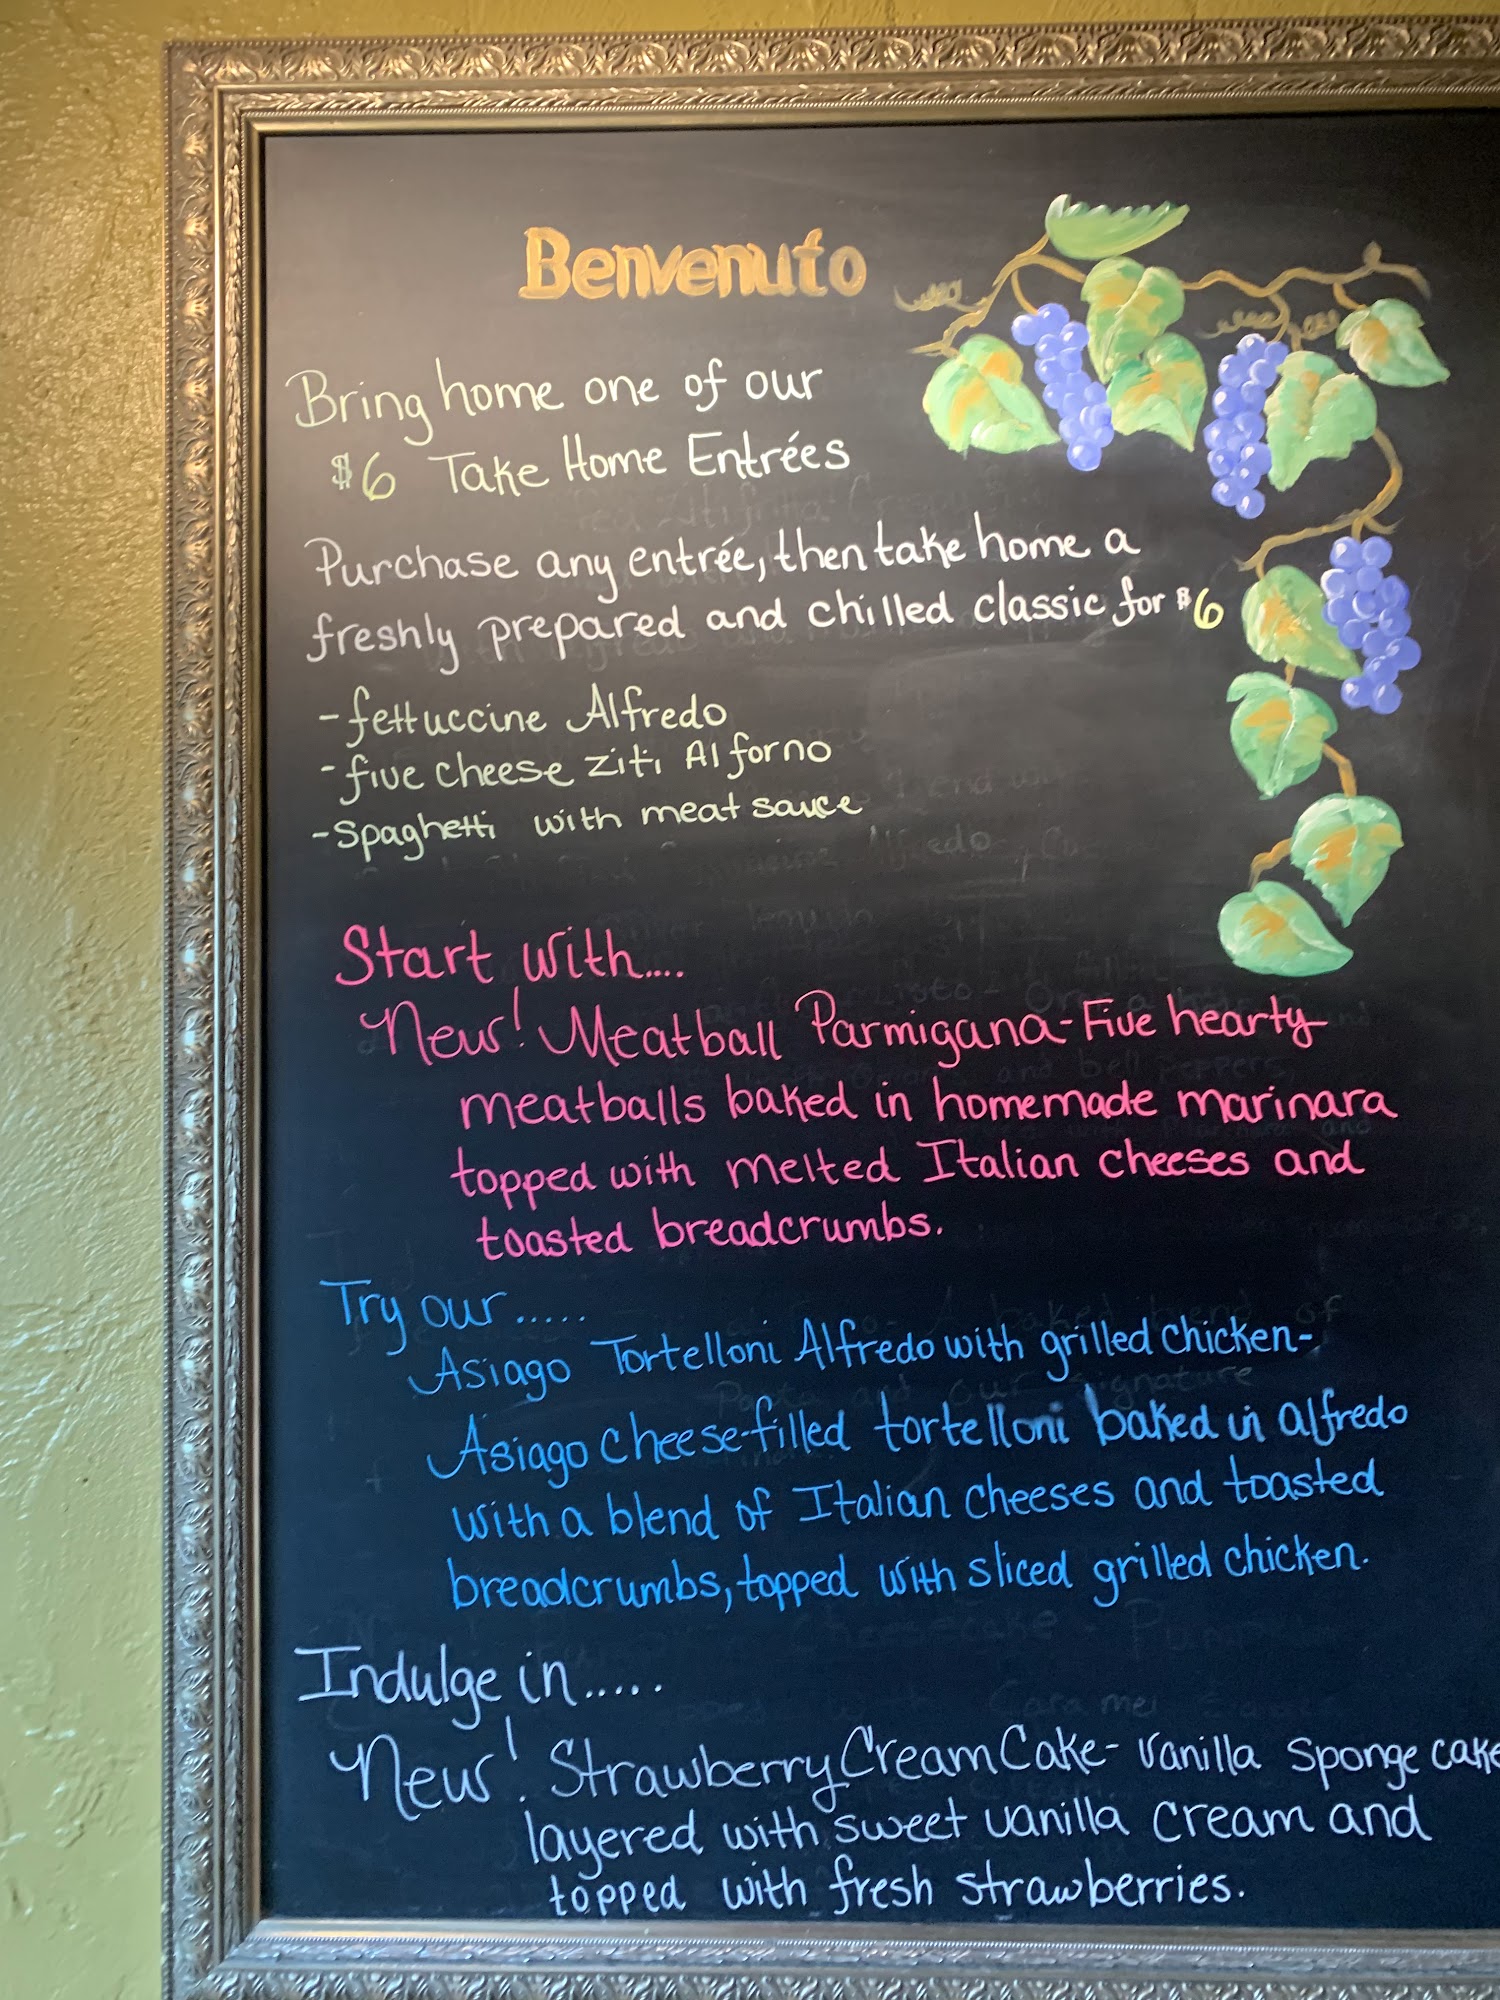 Benvenuto
Bring home one of our
$6 Take Home Entrées
Purchase any entrée, then take home a
freshly prepared and chilled classic for $6
-fettuccine Alfredo
-five cheese ziti Al forno
-Spaghetti with meat sauce
Start with....
New! Meatball Parmigana-Five hearty
meatballs baked in homemade marinara
topped with melted Italian cheeses and
toasted breadcrumbs.
Try our.....
Asiago Tortelloni Alfredo with grilled chicken-
Asiago cheese-filled tortelloni baked in alfredo
with a blend of Italian cheeses and toasted
breadcrumbs, topped with sliced grilled chicken.
Indulge in.....
New! Strawberry Cream Cake- vanilla sponge cake
layered with sweet vanilla cream and
topped with fresh strawberries.